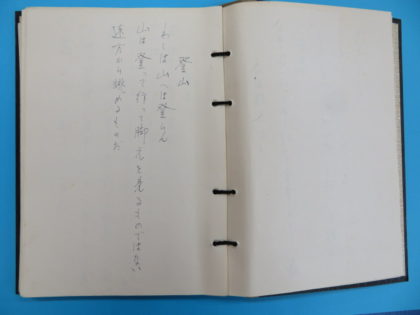 登山
わしは山へは登らん
山は登って行って脚元を見るものではない
遠方から眺めるものだ